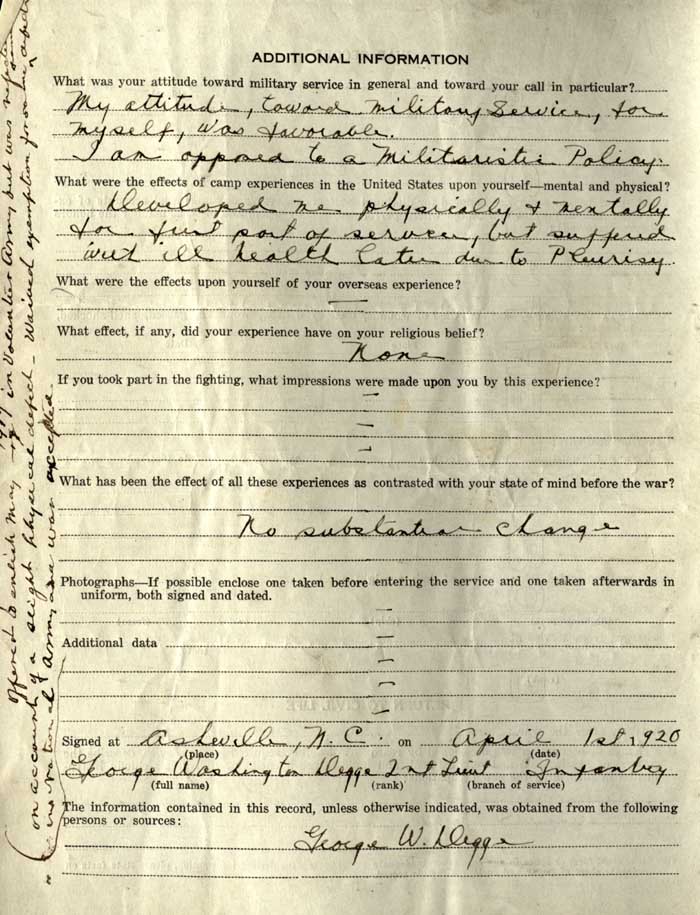 ADDITIONAL INFORMATION
What was your attitude toward military service in general and toward your call in particular?
My attitude, toward military service, for
myself, was favorable.
I am opposed to a Militaristic Policy.
What were the effects of camp experiences in the United States upon yourself—mental and physical?
Developed me physically & mentally
for first part of service, but suffered
with ill health later due to Pleurisy.
What were the effects upon yourself of your overseas experience?
—
What effect, if any, did your experience have on your religious belief?
None
If you took part in the fighting, what impressions were made upon you by this experience?
—
—
—
—
What has been the effect of all these experiences as contrasted with your state of mind before the war?
No substantial change
Photographs—If possible enclose one taken before entering the service and one taken afterwards in
uniform, both signed and dated.
—
Additional data —
—
—
—
Signed at Asheville, N.C. on April 1st, 1920
(place) (date)
George Washington Degge 2nd Lieut Infantry
(full name) (rank) (branch of service)
The information contained in this record, unless otherwise indicated, was obtained from the following
persons or sources:
George W. Degge
Offered to enlist May 1917 in Volunteer Army but was rejected
on account of a slight physical defect - Waived exemption from
National Army and was accepted.